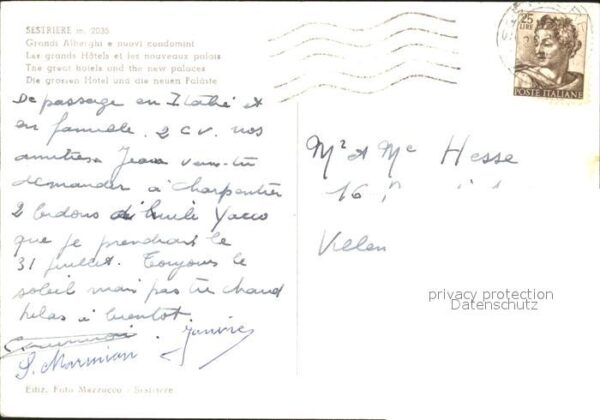 SESTRIERE m. 2035
Grandi Alberghi e nuovi condomini
Les grands Hôtels et les nouveaux palais
The great hotels and the new palaces
Die grossen Hotel und die neuen Paläste
25
LIRE
POSTE ITALIANE
De passage en Italie et
en famille. 2 C.V. nos
amitiés Jean veux-tu
demander à Charpentier
2 bidons d'huile Yacco
que je prendrai le
31 juillet. Toujours le
soleil mais pas très chaud
hélas à bientôt
S. Marmian
Mr et Me Hesse
16
Villen
privacy protection
Datenschutz
Ediz. Foto Mazzucco - Sestriere